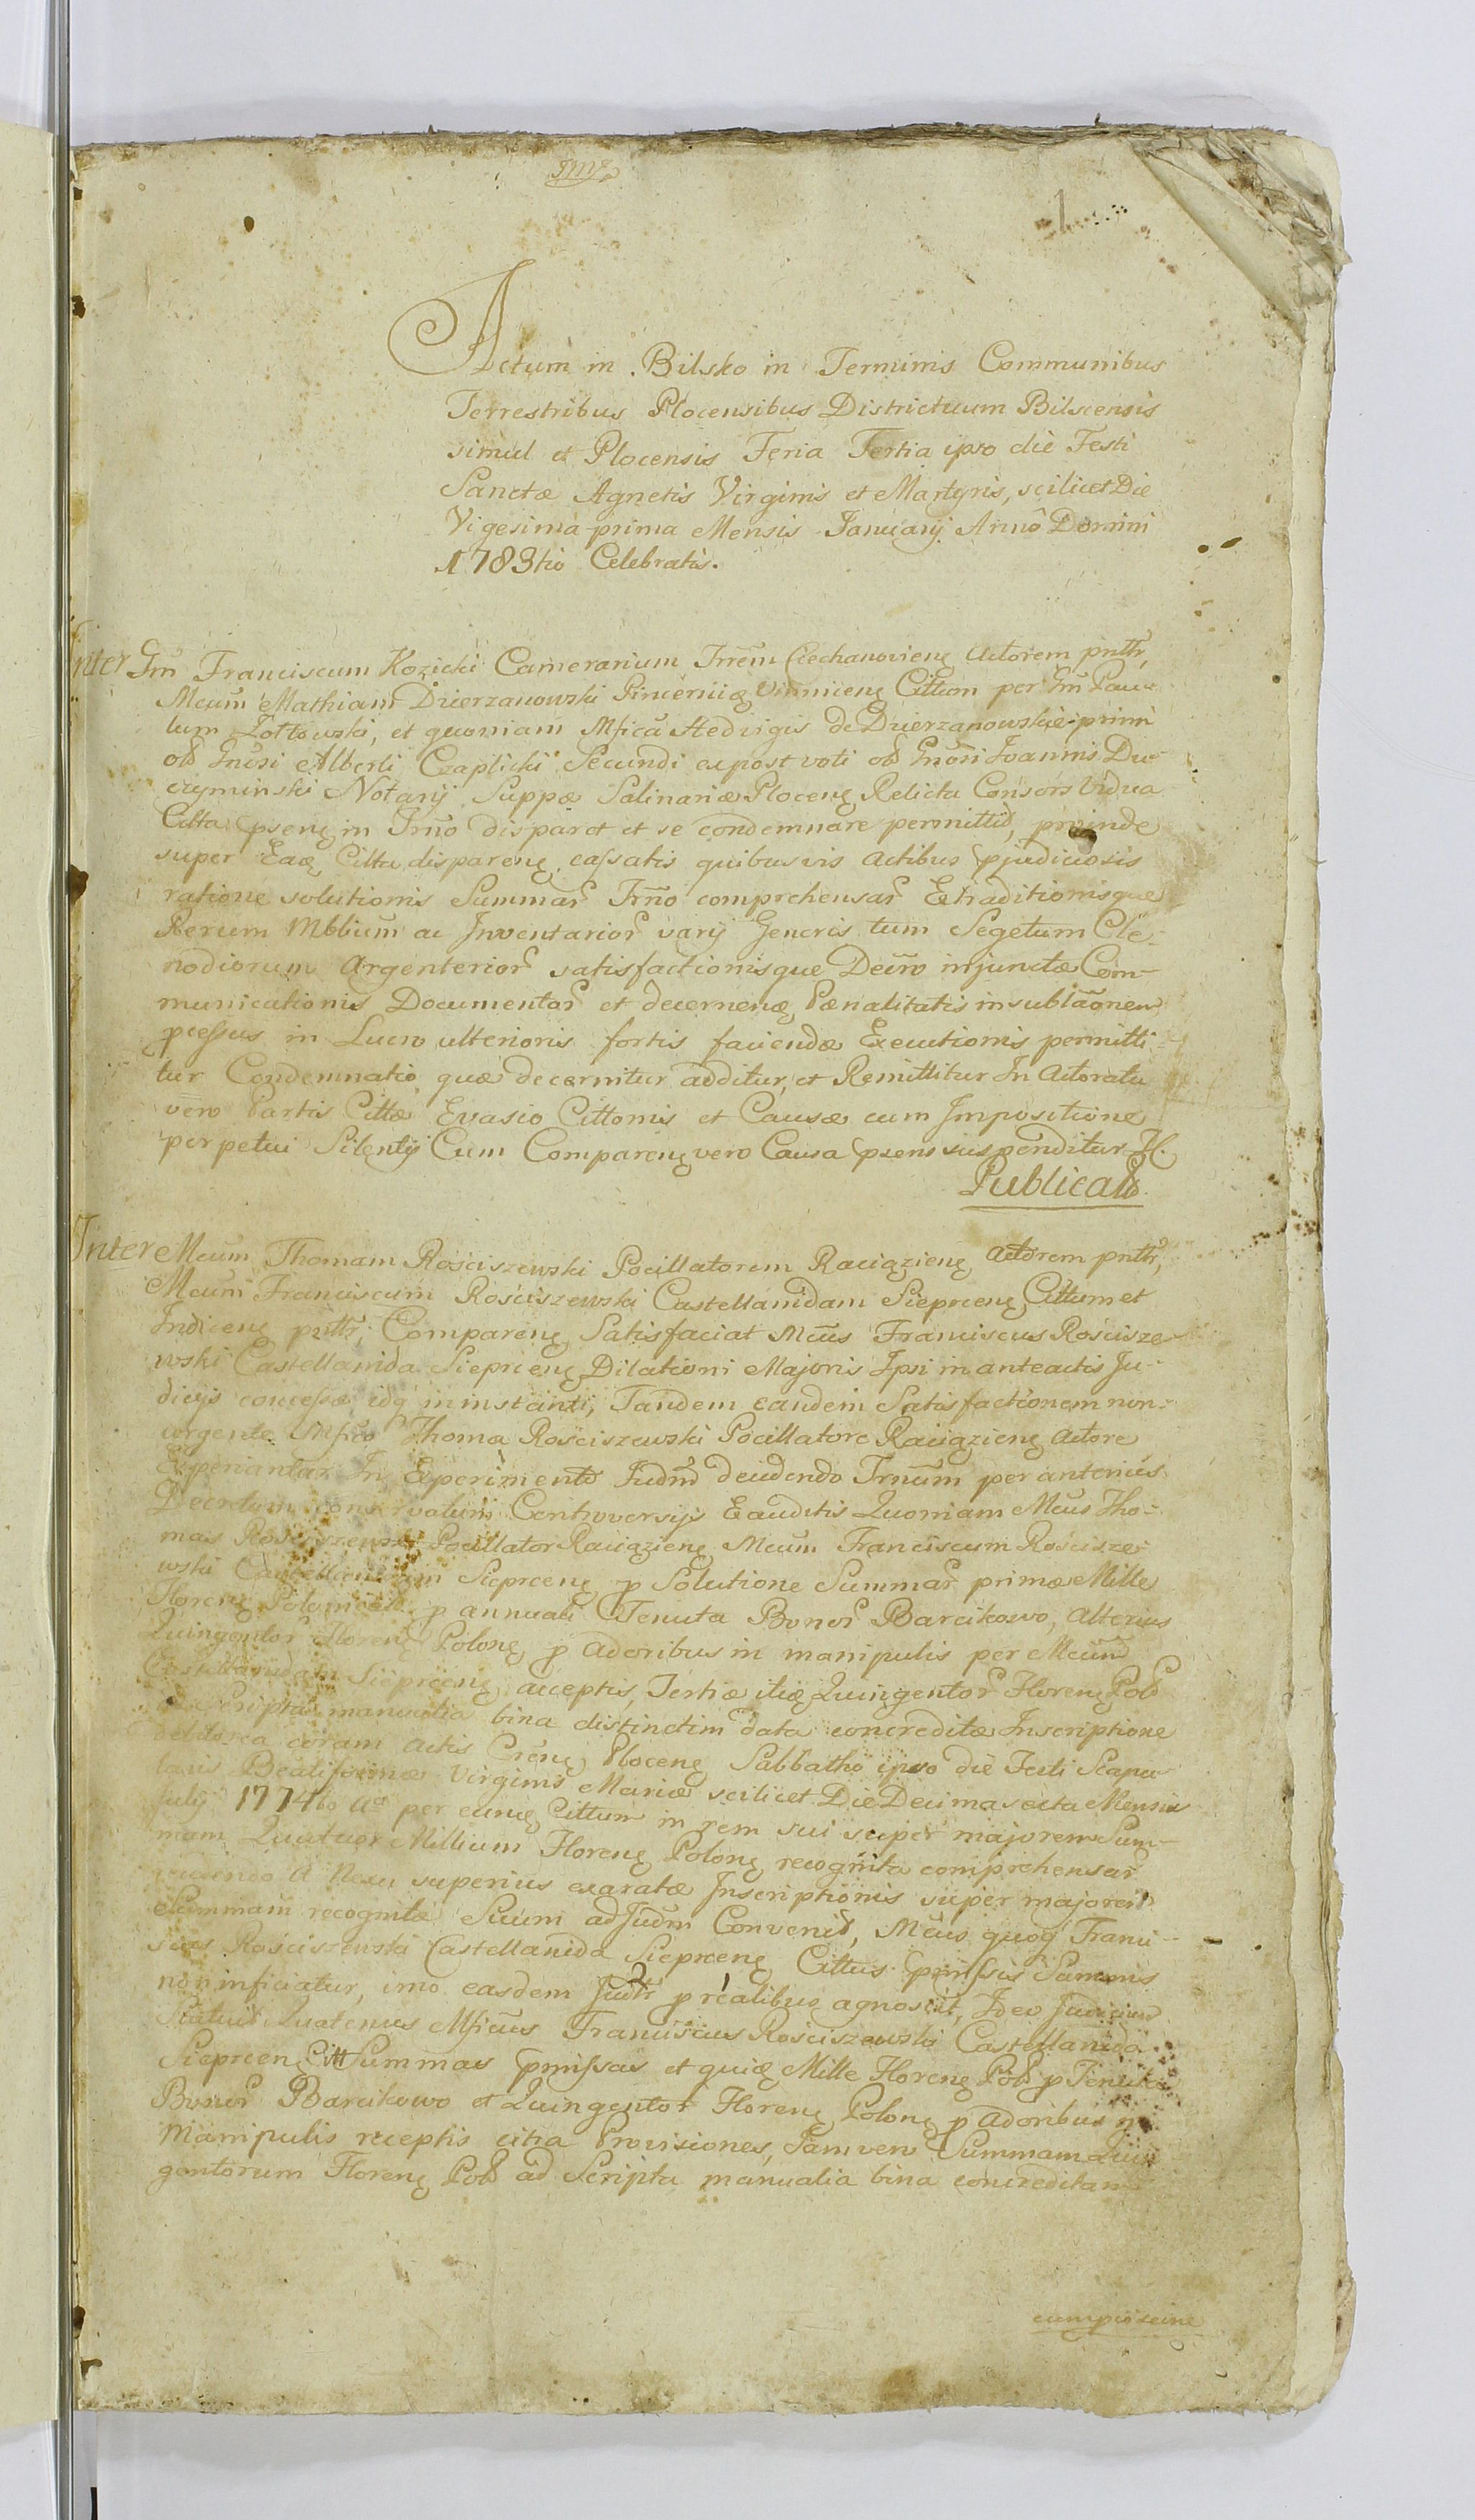 1
Actum in Bilsko in Terminis Communibus
Terrestribus Plocensibus Districtuum Bilscensis
simul et Plocensis Feria Tertia ipso die Festi
Sanctæ Agnetis Virginis et Martyris, scilicet Die
Vigesima prima Mensis Januarij Annô Domini
1783tio Celebratis.
Inter Gm Franciscum Kozicki Camerarium Trrēm Ciechanovienę Actorem pnttr,
Mcum Mathiam Dzierzanowski Pincernię Vinnicenę Cittum per Gm Pau-
lum Zołtowski, et quoniam Mfica Hedvigis de Dzierzanowskie primi
ob Gnosi Alberti Czaplicki Secundi ex post voti ob Gnosi Joannis Du-
czyminski Notarij Suppæ Salinariæ Plocenę Relicta Consors Vidua
Citta psenę in Trno disparet et se condemnare permittid, proinde
super Eaę Citta disparenę cassatis quibusvis actibus pjudiciosis
ratione solutionis Summar Trno comprehensar Extraditionisque
Rerum Mblium ac Inventarior varij Generis tum Segetum Cle-
nodiorum Argenterior satisfactionisque Decro injunctæ Com-
municationis Documentor et decernenę Pœnalitatis in sublāonem
pcessus in Lucro ulterioris fortis faciendæ Executionis permitti
tur Condemnatio quæ decernitur additur, et Remittitur In Actoratu
vero Partis Cittæ Evasio Cittonis et Causæ cum Impositione
perpetui Silentij Cum Comparenę vero Causa psens suspenditur H.
Publicatd
Inter Mcum Thomam Rosciszewski Pocillatorem Raciązienę Actorem pnttr,
Mcum Franciscum Rosciszewski Castellanidam Sieprcenę Cittum et
Indicenę pnttr, Comparenę Satisfaciat Mcus Franciscus Roscisze
wski Castellanida Sieprcenę Dilationi Majoris Ipsi in anteactis Ju-
dicijs concessæ idq in instanti, Tandem eandem Satisfactionem non-
urgente Mfico Thoma Rosciszewski Pocillatore Raciązienę Actore
Experiantur In Experimento Judrio decidendo Trnum per anterius
Decretum conservatum Controversijs Exauditis Quoniam Mcus Tho-
mas Rosciszewski Pocillator Raciązienę Mcum Franciscum Roscisze-
wski Castellanidam Sieprcenę p Solutione Summar primæ Mille
Florenę Polonical p annuali Tenuta Bonor Barcikowo, alterius
Quingentor Florenę Polonę p Adoribus in manipulis per Mcund
Castellanidam Sieprcenę acceptis, Tertiæ itię Quingentor Florenę Pold
Scripta manualia bina distinctim data concreditæ Inscriptione
debitorea coram Actis Crenę Plocenę Sabbatho ipso die Festi Scapu
laris Beatissimæ Virginis Mariæ scilicet Die Decima sexta Mensis
Julij 1774to Ao per eunę Cittum in rem sui super majorem Sum-
mam Quatuor Millium Florenę Polonę recognita comprehensar
A Nexu superius exaratæ Inscriptionis super majorem
Summam recognitæ Suum ad Judm Convenit, Mcus quoq Franci-
scus Rosciszewski Castellanida Sieprcenę Cittus pmissis Summis
non inficiatur, imo easdem Judtr p realibus agnoscit, Ideo Judicium
Statuit Quatenus Mficus Franciscus Rosciszewski Castellanida
Sieprcenę Citt Summas pmissas et quię Mille Florenę Pold p Tenuta
Bonor Barcikowo et Quingentor Florenę Polonę p Adoribus in
Manipulis receptis citra Provisiones, Jam vero Summam Quin
gentorum Florenę Pold ad Scripta manualia bina concreditam
cum provisione